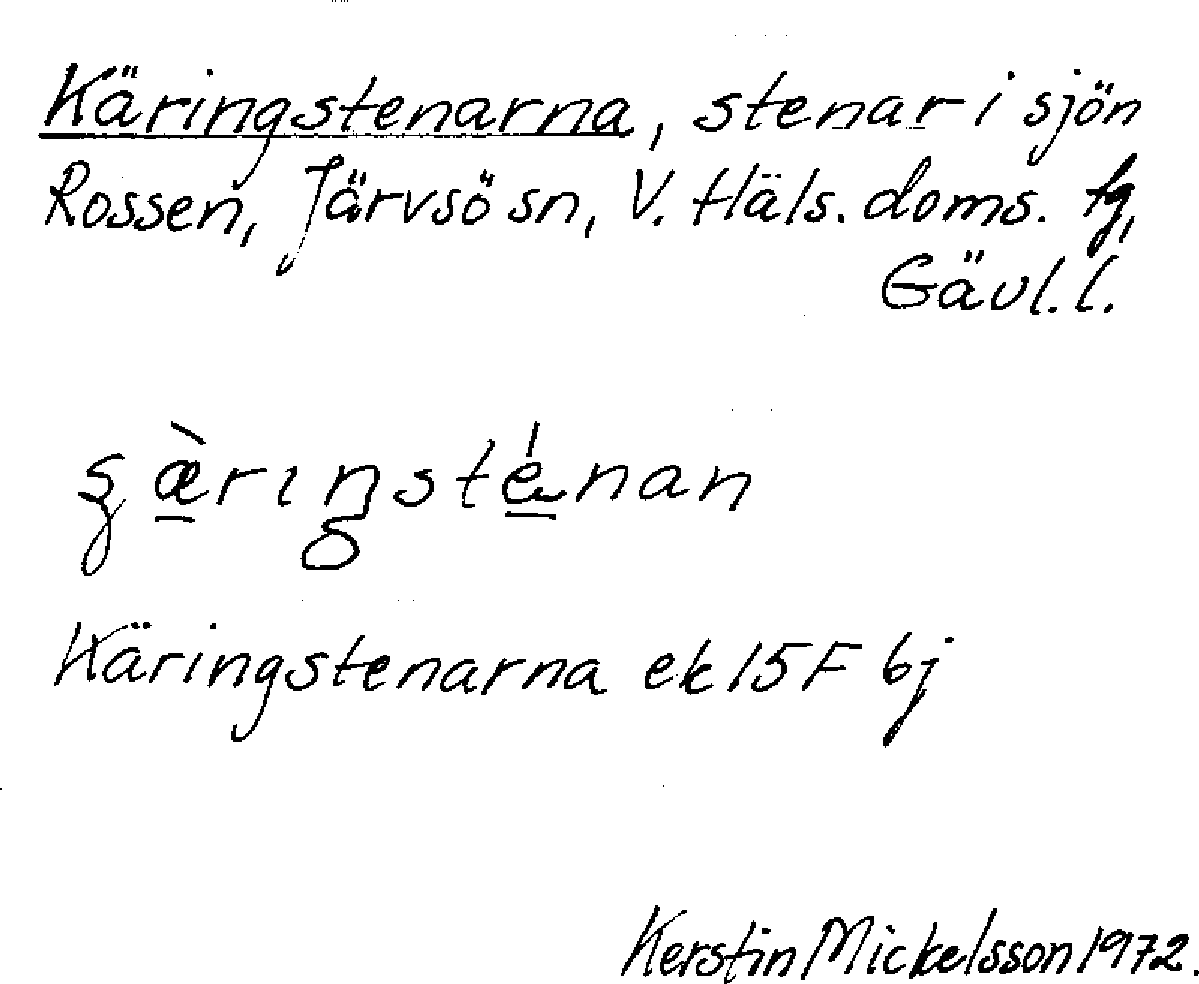 Käringstenarna, stenar i sjön
Rossen, Järvsö sn, V. Häls. doms. tg,
Gävl. l.
Käringstenarna ek 15F 6j
Kerstin Mickelsson 1972.